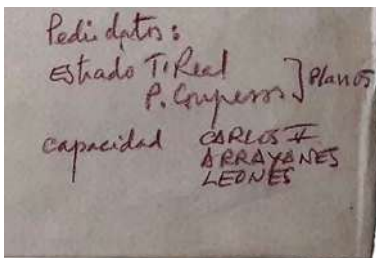 Pedir datos:
Estrado T. Real
P. Congresos ] Planos
capacidad CARLOS V
ARRAYANES
LEONES